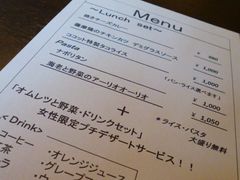 Menu
～Lunch set～
焼きチーズカレー ¥ 980
薩摩鶏のチキンカツ デミグラスソース
ココット特製タコライス ¥ 1,000
「パン・ライス選べます」
Pasta ¥ 1,000
ナポリタン ¥ 1,000
海老と野菜のアーリオオーリオ ¥ 1,050
＋
＊ライス・パスタ
大盛り無料
「オムレツと野菜・ドリンクセット」
女性限定プチデザートサービス！！
＜Drink＞
コーヒー ・オレンジジュース
茶 ・グレープ
ラ ・ウ